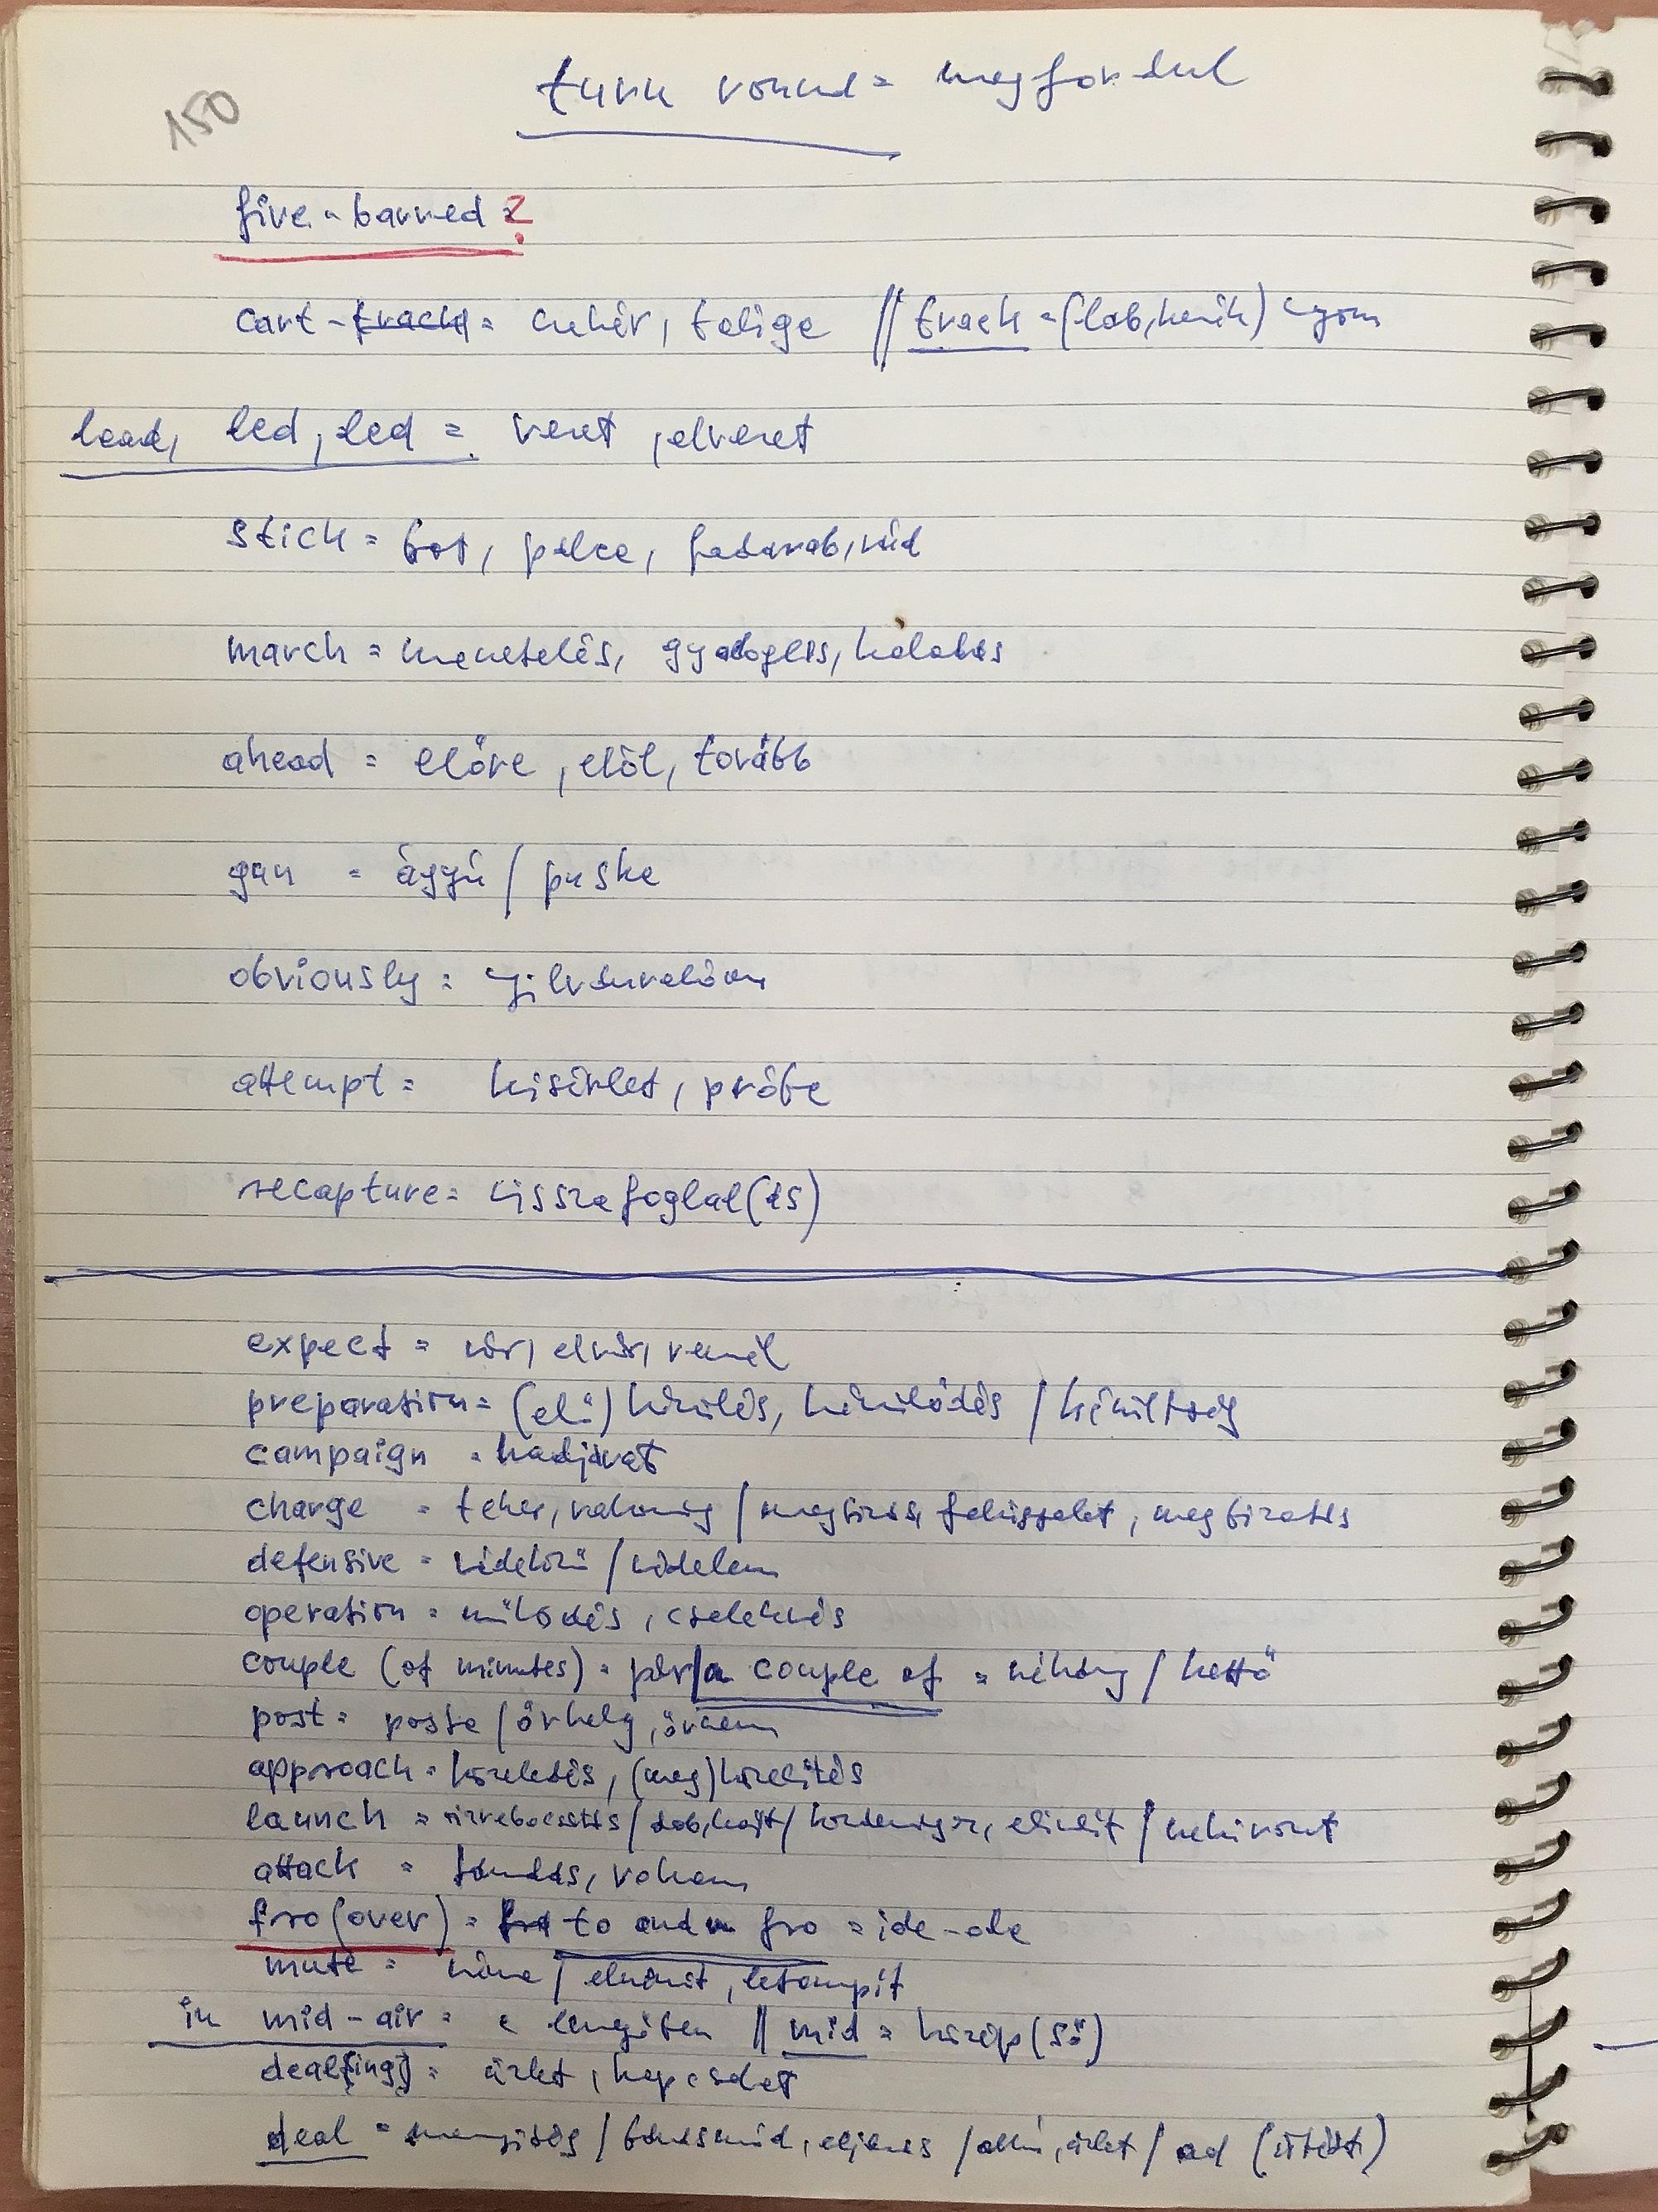 150
turn round = megfordul
five-barred = ?
cart-track = kuhér, talige // track = (láb, kerék) nyom
lead, led, led = vezet, elvezet
stick = bot, pálca, fadarab, rúd
march = menetelés, gyaloglás, haladás
ahead = előre, elöl, tovább
gun = ágyú / puska
obviously = nyilvánvalóan
attempt = kisérlet, próba
recapture = visszafoglal(ás)
expect = vár, elvár, remél
preparation = (elő) készülés, készülődés / készültség
campaign = hadjárat
charge = teher, rakomány / megbízás, felügyelet, megbízatás
defensive = védekező / védelem
operation = működés, cselekvés
couple (of minutes) = pár / a couple of = néhány / kettő
post = posta / őrhely, őrszem
approach = közeledés, (meg)közelítés
launch = vízrebocsátás / dob, hajít / kezdeményez, elindít / kirukkol
attack = támadás, roham
fro (over) = to and fro = ide-oda
mute = néma / elnémít, letompít
in mid-air = a levegőben // mid = közép(ső)
deal(ing) = üzlet, kapcsolat
deal = mennyiség / bánásmód, eljárás / alku, üzlet / ad (ütést)